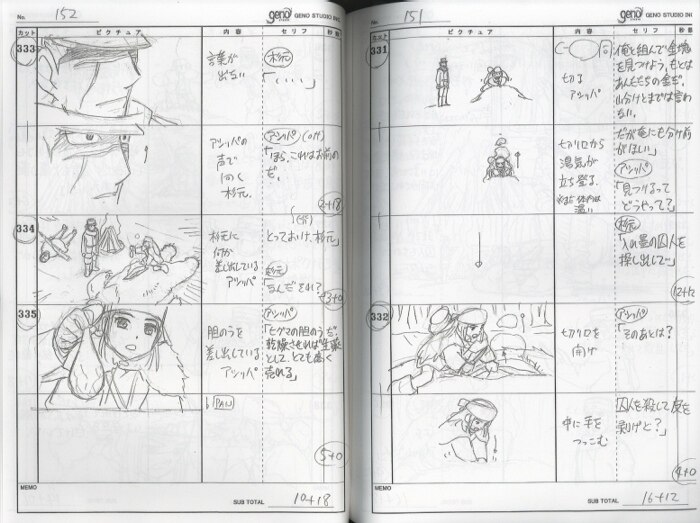 No. 152
geno GENO STUDIO INC.
カット
ピクチュア
内容
セリフ
秒数
333
言葉が
出ない
杉元
「‥‥」
アシㇼパの
声で
向く
杉元
アシㇼパ (off)
「ほら、これはお前の
だ。
2+18
334
杉元に
何か
差し出している
アシㇼパ
とっておけ、杉元」
杉元
「なんだそれ?」
3+0
335
胆のうを
差し出している
アシㇼパ
アシㇼパ
「ヒグマの胆のうだ。
乾燥させれば生薬
として、とても高く
売れる」
PAN
5+0
MEMO
SUB TOTAL 10+18
No. 151
geno GENO STUDIO INC.
カット
ピクチュア
内容
セリフ
秒数
331
切る
アシㇼパ
俺と組んで金塊
を見つけよう。もとは
あんたたちの金だ。
山分けとまでは言わ
ない。
切り口から
湯気が
立ち登る。
だが俺にも分け前
がほしい」
アシㇼパ
「見つけるって
どうやって?」
杉元
「入れ墨の囚人を
探し出して‥」
12+12
332
切り口を
開け
アシㇼパ
「そのあとは?
中に手を
つっこむ
囚人を殺して皮を
剥げと?」
4+0
MEMO
SUB TOTAL 16+12